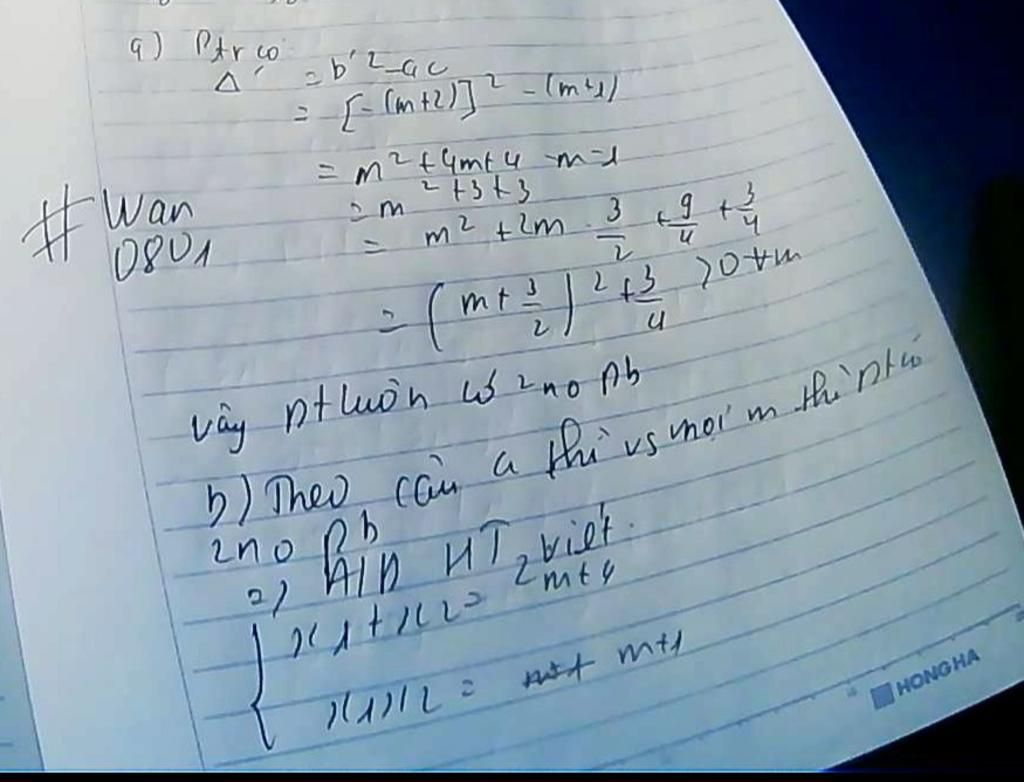 a) Ptr có
Δ' = b'² - ac
= [-(m+2)]² - (m+1)
= m² + 4m + 4 - m - 1
= m² + 3 + 3
= m² + 2m . 3/2 + 9/4 + 3/4
= (m + 3/2)² + 3/4 > 0 ∀m
# Wan
0801
Vây pt luôn có 2 no pb
b) Theo câu a thì vs mọi m thì pt có
2 no pb
=) A/D HT Viét.
x1 + x2 = 2m+4
x1x2 = m+1
HONG HA